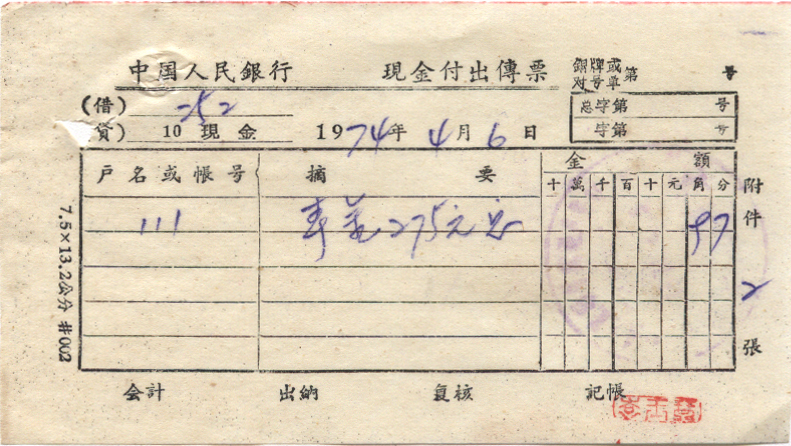 中国人民銀行 現金付出傳票 銅牌或对号单第 号
(借) 252 总字第 号
(貸) 10 現金 1974年4月6日 字第 号
戶名或帳号 摘要 金額
十萬千百十元角分
111 275元 97
附件2张
7.5×13.2公分 #002
会計 出納 复核 記帳